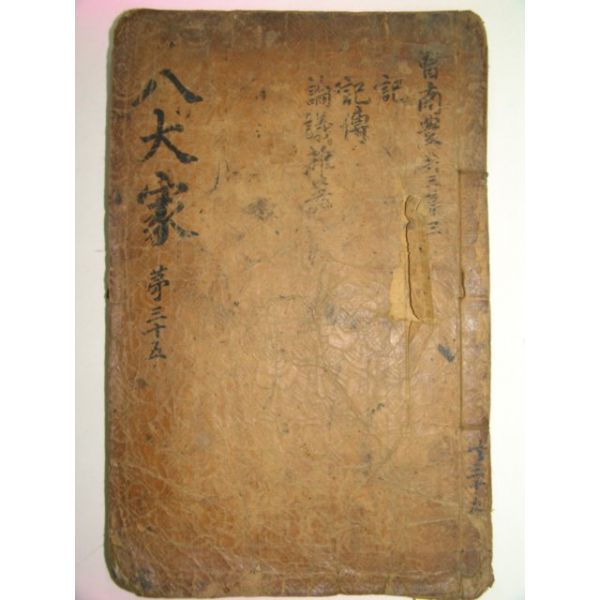 曾南豐共三卷之三
記
記傳
論議雜著
八大家
茅三十五
共三十九